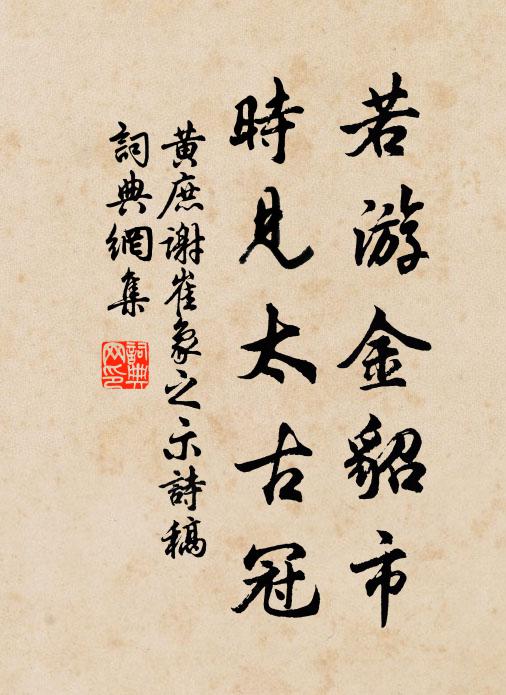 若游金貂市
時見太古冠
黃庶謝崔象之示詩稿
詞典網集
詞典网印